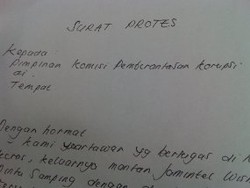 SURAT PROTES
Kepada
Pimpinan Komisi Pemberantasan Korupsi
di
Tempat
Dengan hormat
Kami wartawan yg bertugas di
keluarnya mantan Jamintel Wis
Pintu Samping dengan